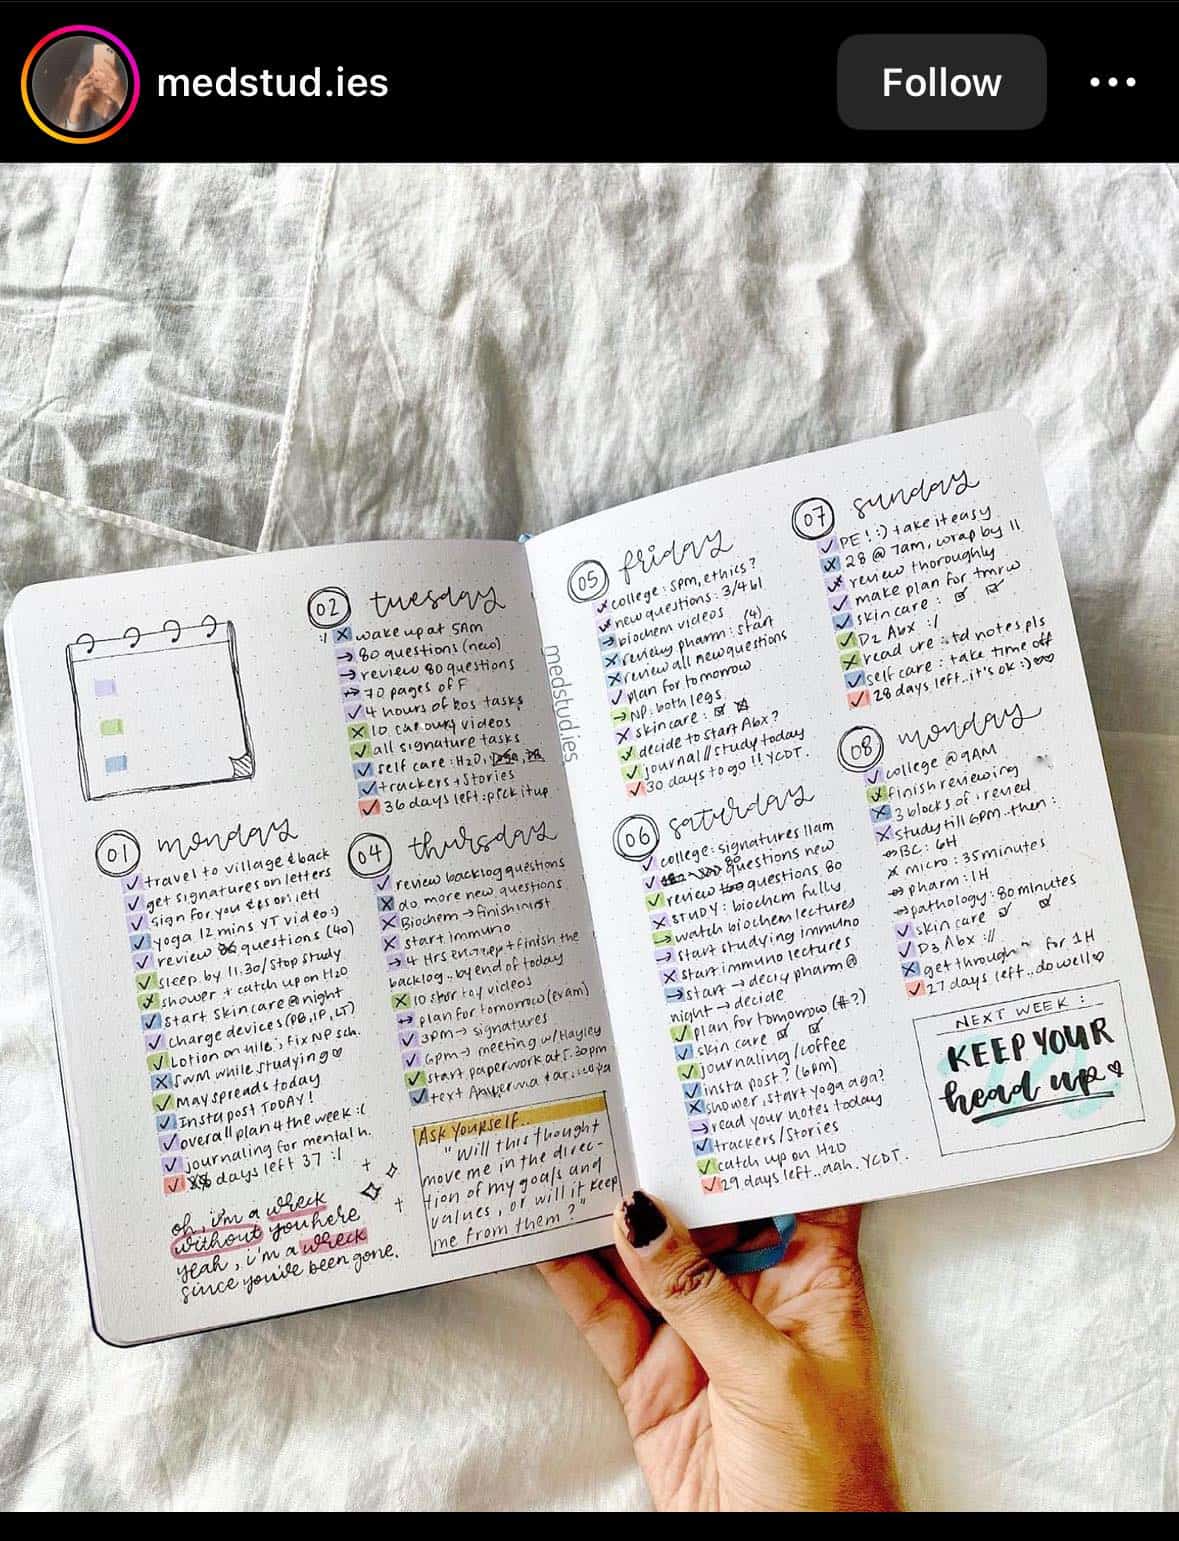 medstud.ies
Follow
01 monday
travel to village & back
get signatures on letters
sign for you
yoga 12 mins YT video :)
review questions (40)
sleep by 11.30/stop study
shower + catch up on H2O
start skincare @ night
charge devices (PB, IP, LT)
Lotion on, fix NP sch.
SWM while studying ♡
May spreads today
Insta post TODAY!
overall plan 4 the week :(
journaling for mental h.
days left 37 :/
oh, i'm a wreck
without you here
yeah, i'm a wreck
since you've been gone.
02 tuesday
:/ wake up at 5AM
80 questions (new)
review 80 questions
70 pages of F
4 hours of bos tasks
10 videos
all signature tasks
self care : H2O,
trackers + stories
36 days left : pick it up
04 thursday
review backlog questions
do more new questions
Biochem → finish
start Immuno
4 Hrs + finish the
backlog.. by end of today
10 videos
plan for tomorrow (exam)
3pm → signatures
6pm → meeting w/ Hayley
start paperwork at 5.30pm
text
Ask Yourself..
"Will this thought
move me in the direc-
tion of my goals and
values, or will it keep
me from them?"
medstud.ies
05 friday
college : 5pm, ethics?
new questions : 3/4 bl
biochem videos
review pharm : start (4)
review all new questions
plan for tomorrow
NP: both legs
skincare :
decide to start Abx?
journal // study today
30 days to go !! YCDT.
06 saturday
college : signatures 11am
80 questions new
review questions 80
STUDY : biochem fully
watch biochem lectures
start studying immuno
start immuno lectures
start → decly pharm @
night → decide
plan for tomorrow (#?)
skin care
journaling/coffee
insta post? (6pm)
shower, start yoga aga?
read your notes today
trackers/stories
catch up on H2O
29 days left.. aah. YCDT.
07 sunday
PE! :) take it easy
28 @ 7am, wrap by 11
review thoroughly
make plan for tmrw
skincare :
D2 Abx :/
read notes pls
self care : take time off
28 days left.. it's ok :) ♡♡
08 monday
college @ 9AM
finish reviewing
3 blocks of
study till 6pm.. then :
BC : 6H
micro : 35 minutes
pharm : 1H
pathology : 80 minutes
skin care
D3 Abx ://
get through for 1H
27 days left.. do well ♡
NEXT WEEK :
KEEP YOUR
head up ♡